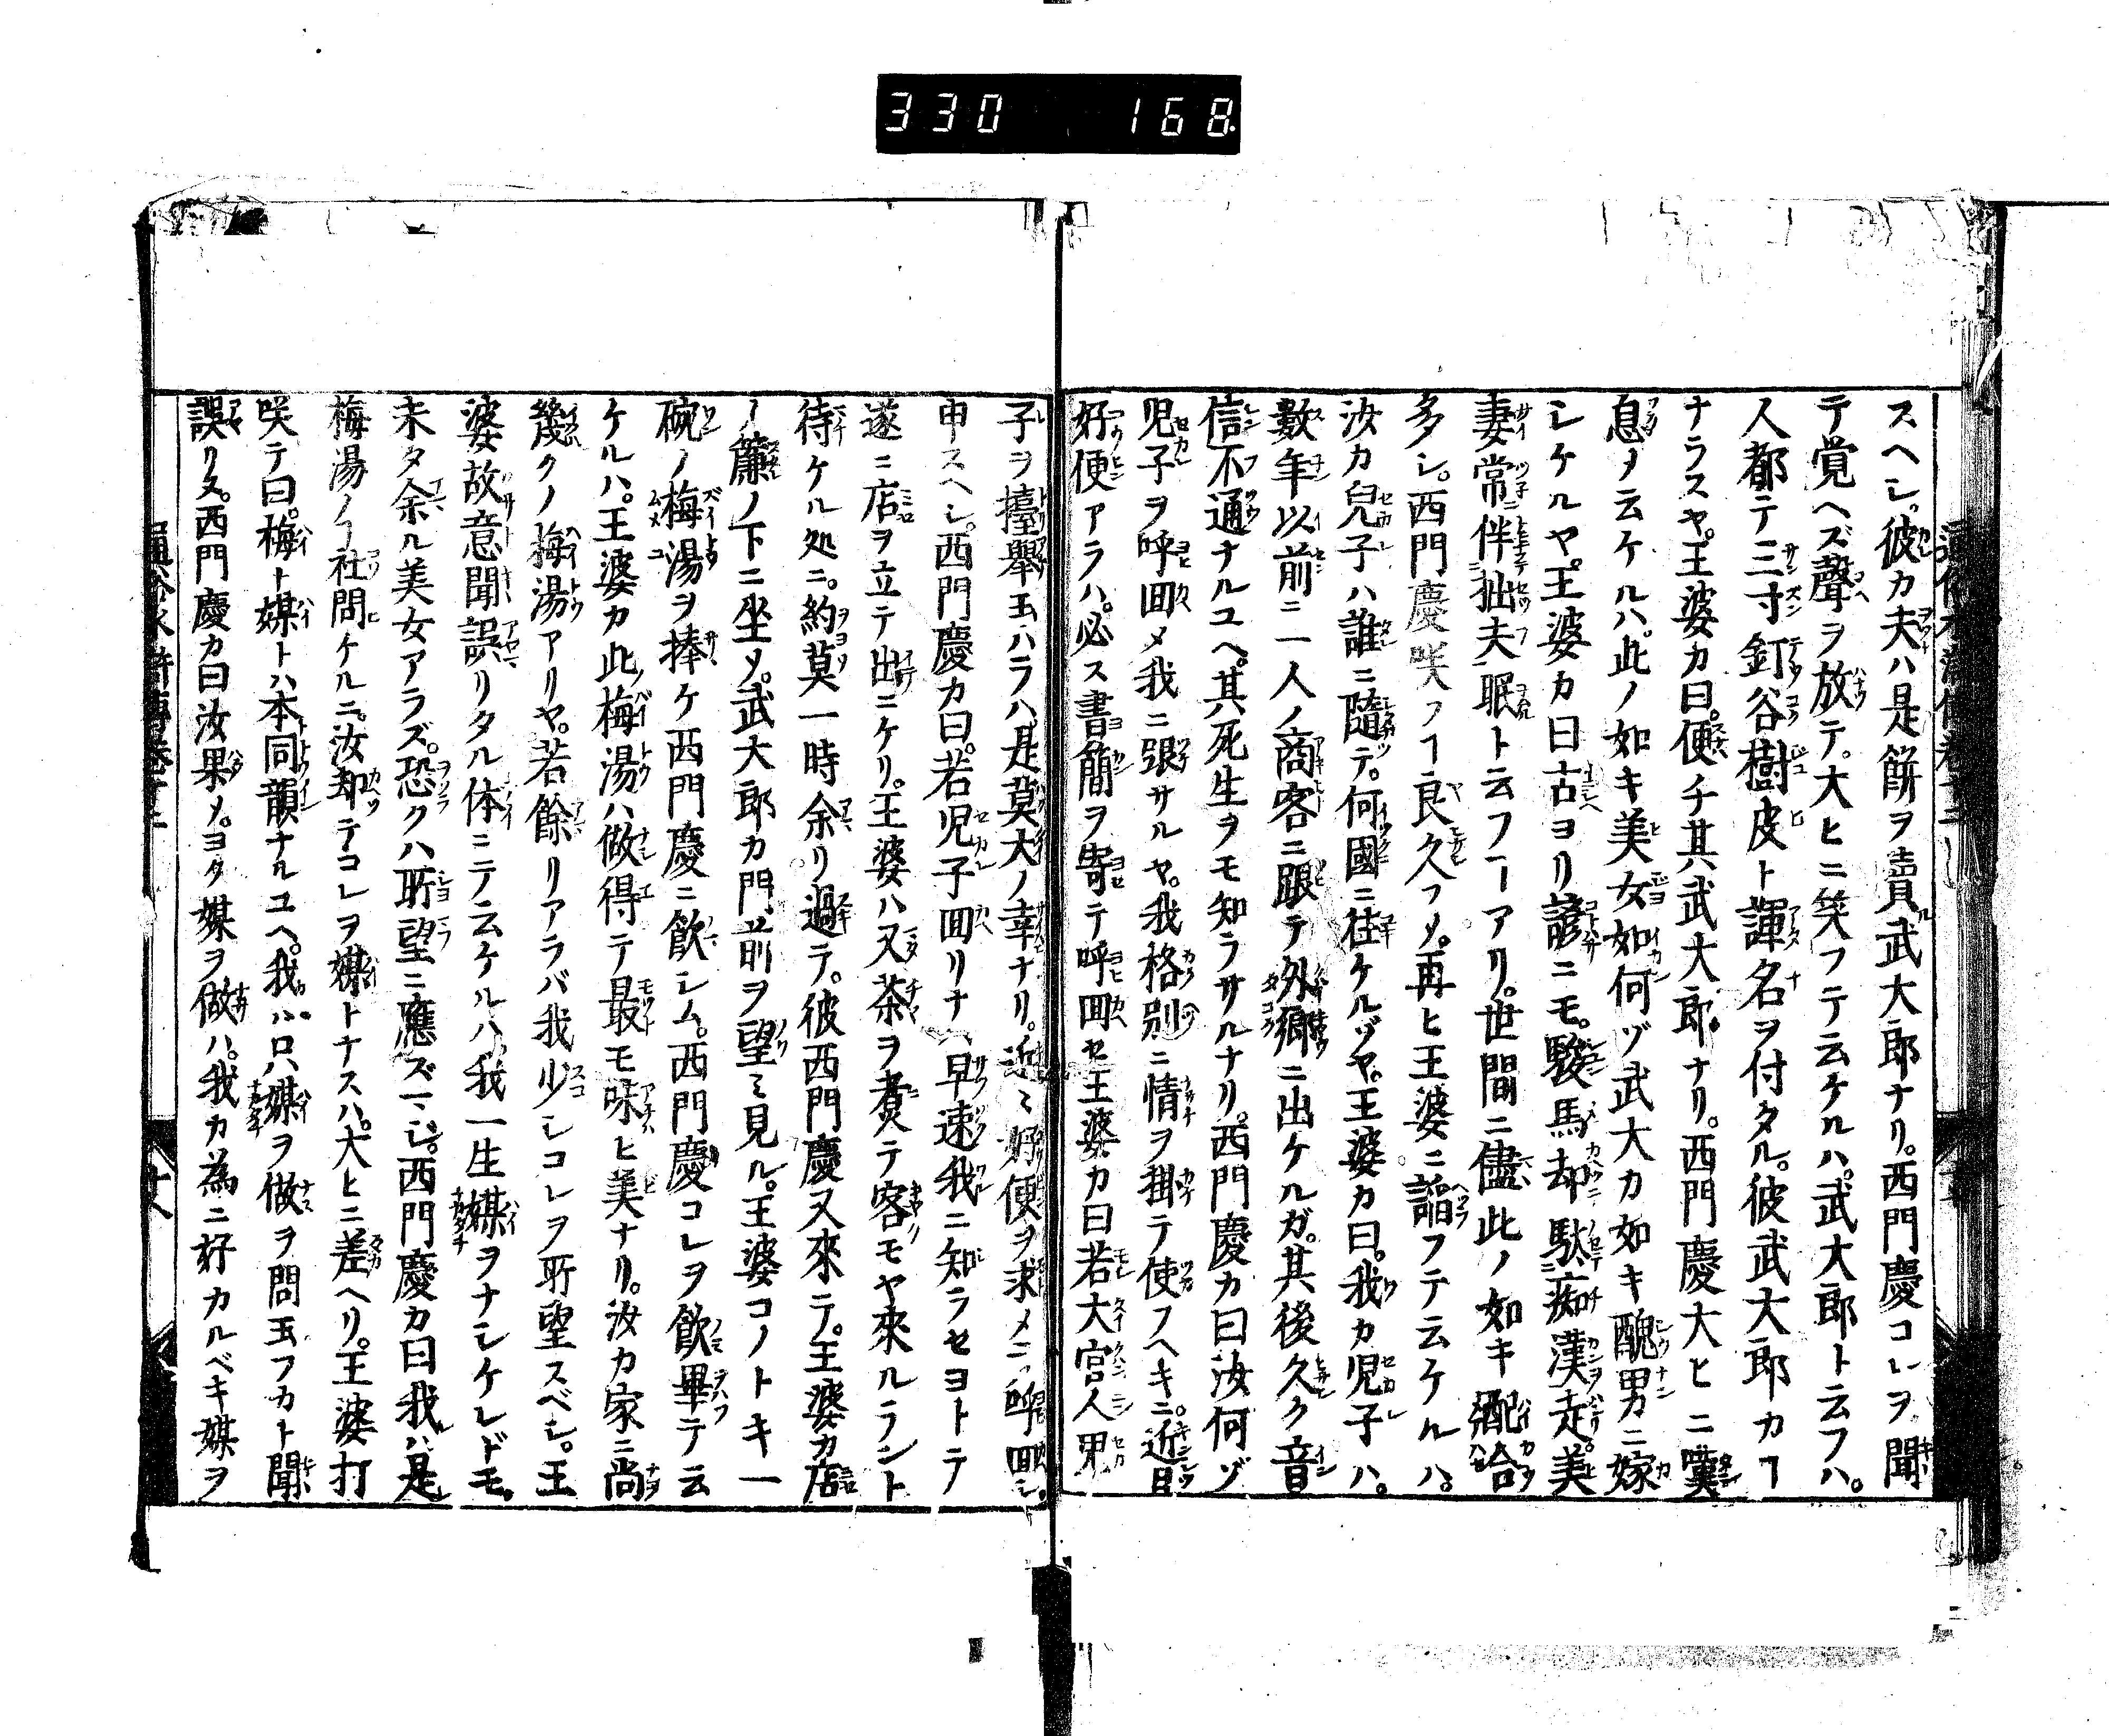 330 168
スヘシ。彼カ夫ハ是餅ヲ賣武大郎ナリ。西門慶コレヲ聞
テ覚ヘズ聲ヲ放テ。大ヒニ笑フテ云ケルハ。武大郎ト云フハ。
人都テ三寸釘谷樹皮ト諢名ヲ付タル。彼武大郎カヿ
ナラスヤ。王婆カ曰。便チ其武大郎ナリ。西門慶大ヒニ嘆
息メ云ケルハ。此ノ如キ美女如何ゾ武大カ如キ醜男ニ嫁
シケルヤ。王婆カ曰古ヨリ諺ニモ。駿馬却駄痴漢走。美
妻常伴拙夫眠ト云フヿアリ。世間ニ儘此ノ如キ配合
多シ。西門慶咲フヿ良久フメ。再ヒ王婆ニ謟フテ云ケルハ。
汝カ兒子ハ誰ニ隨テ。何國ニ往ケルゾヤ。王婆カ曰。我カ児子ハ。
數年以前ニ一人ノ商客ニ跟テ外郷ニ出ケルガ。其後久ク音
信不通ナルユヘ。其死生ヲモ知ラサルナリ。西門慶カ曰汝何ゾ
児子ヲ呼回メ我ニ張サルヤ。我格別ニ情ヲ掛テ使フヘキニ。近日
好便アラハ。必ス書簡ヲ寄テ呼回セ王婆カ曰若大官人男
子ヲ擡舉玉ハラハ。是莫大ノ幸ナリ。近ミ好便ヲ求メニ呼回シ。
申スヘシ。西門慶カ曰。若児子回リナハ早速我ニ知ラセヨトテ
遂ニ店ヲ立テ出ニケリ。王婆ハ又茶ヲ煑テ客モヤ來ルラント
待ケル処ニ。約莫一時余リ過テ。彼西門慶又來テ。王婆カ店
ノ簾ノ下ニ坐ソ。武大郎カ門前ヲ望ミ見ル。王婆コノトキ一
碗ノ梅湯ヲ捧ケ西門慶ニ飲シム。西門慶コレヲ飲畢テ云
ケルハ。王婆カ此梅湯ハ做得テ最モ味ヒ美ナリ。汝カ家ニ尚
幾クノ梅湯アリヤ。若餘リアラバ我少シコレヲ所望スベシ。王
婆故意聞誤リタル体ニテ云ケルハ。我一生媒ヲナシケレドモ。
未タ余ル美女アラズ。恐クハ所望ニ應ズマシ。西門慶カ曰我ハ是
梅湯ノヿ社問ケルニ。汝却テコレヲ媒トナスハ。大ヒニ差ヘリ。王婆打
咲テ曰。梅ト媒トハ本同韻ナルユヘ。我ハ只媒ヲ做ヲ問玉フカト聞
誤リタ。西門慶カ曰汝果メ。ヨタ媒ヲ做ハ。我カ為ニ好カルベキ媒ヲ